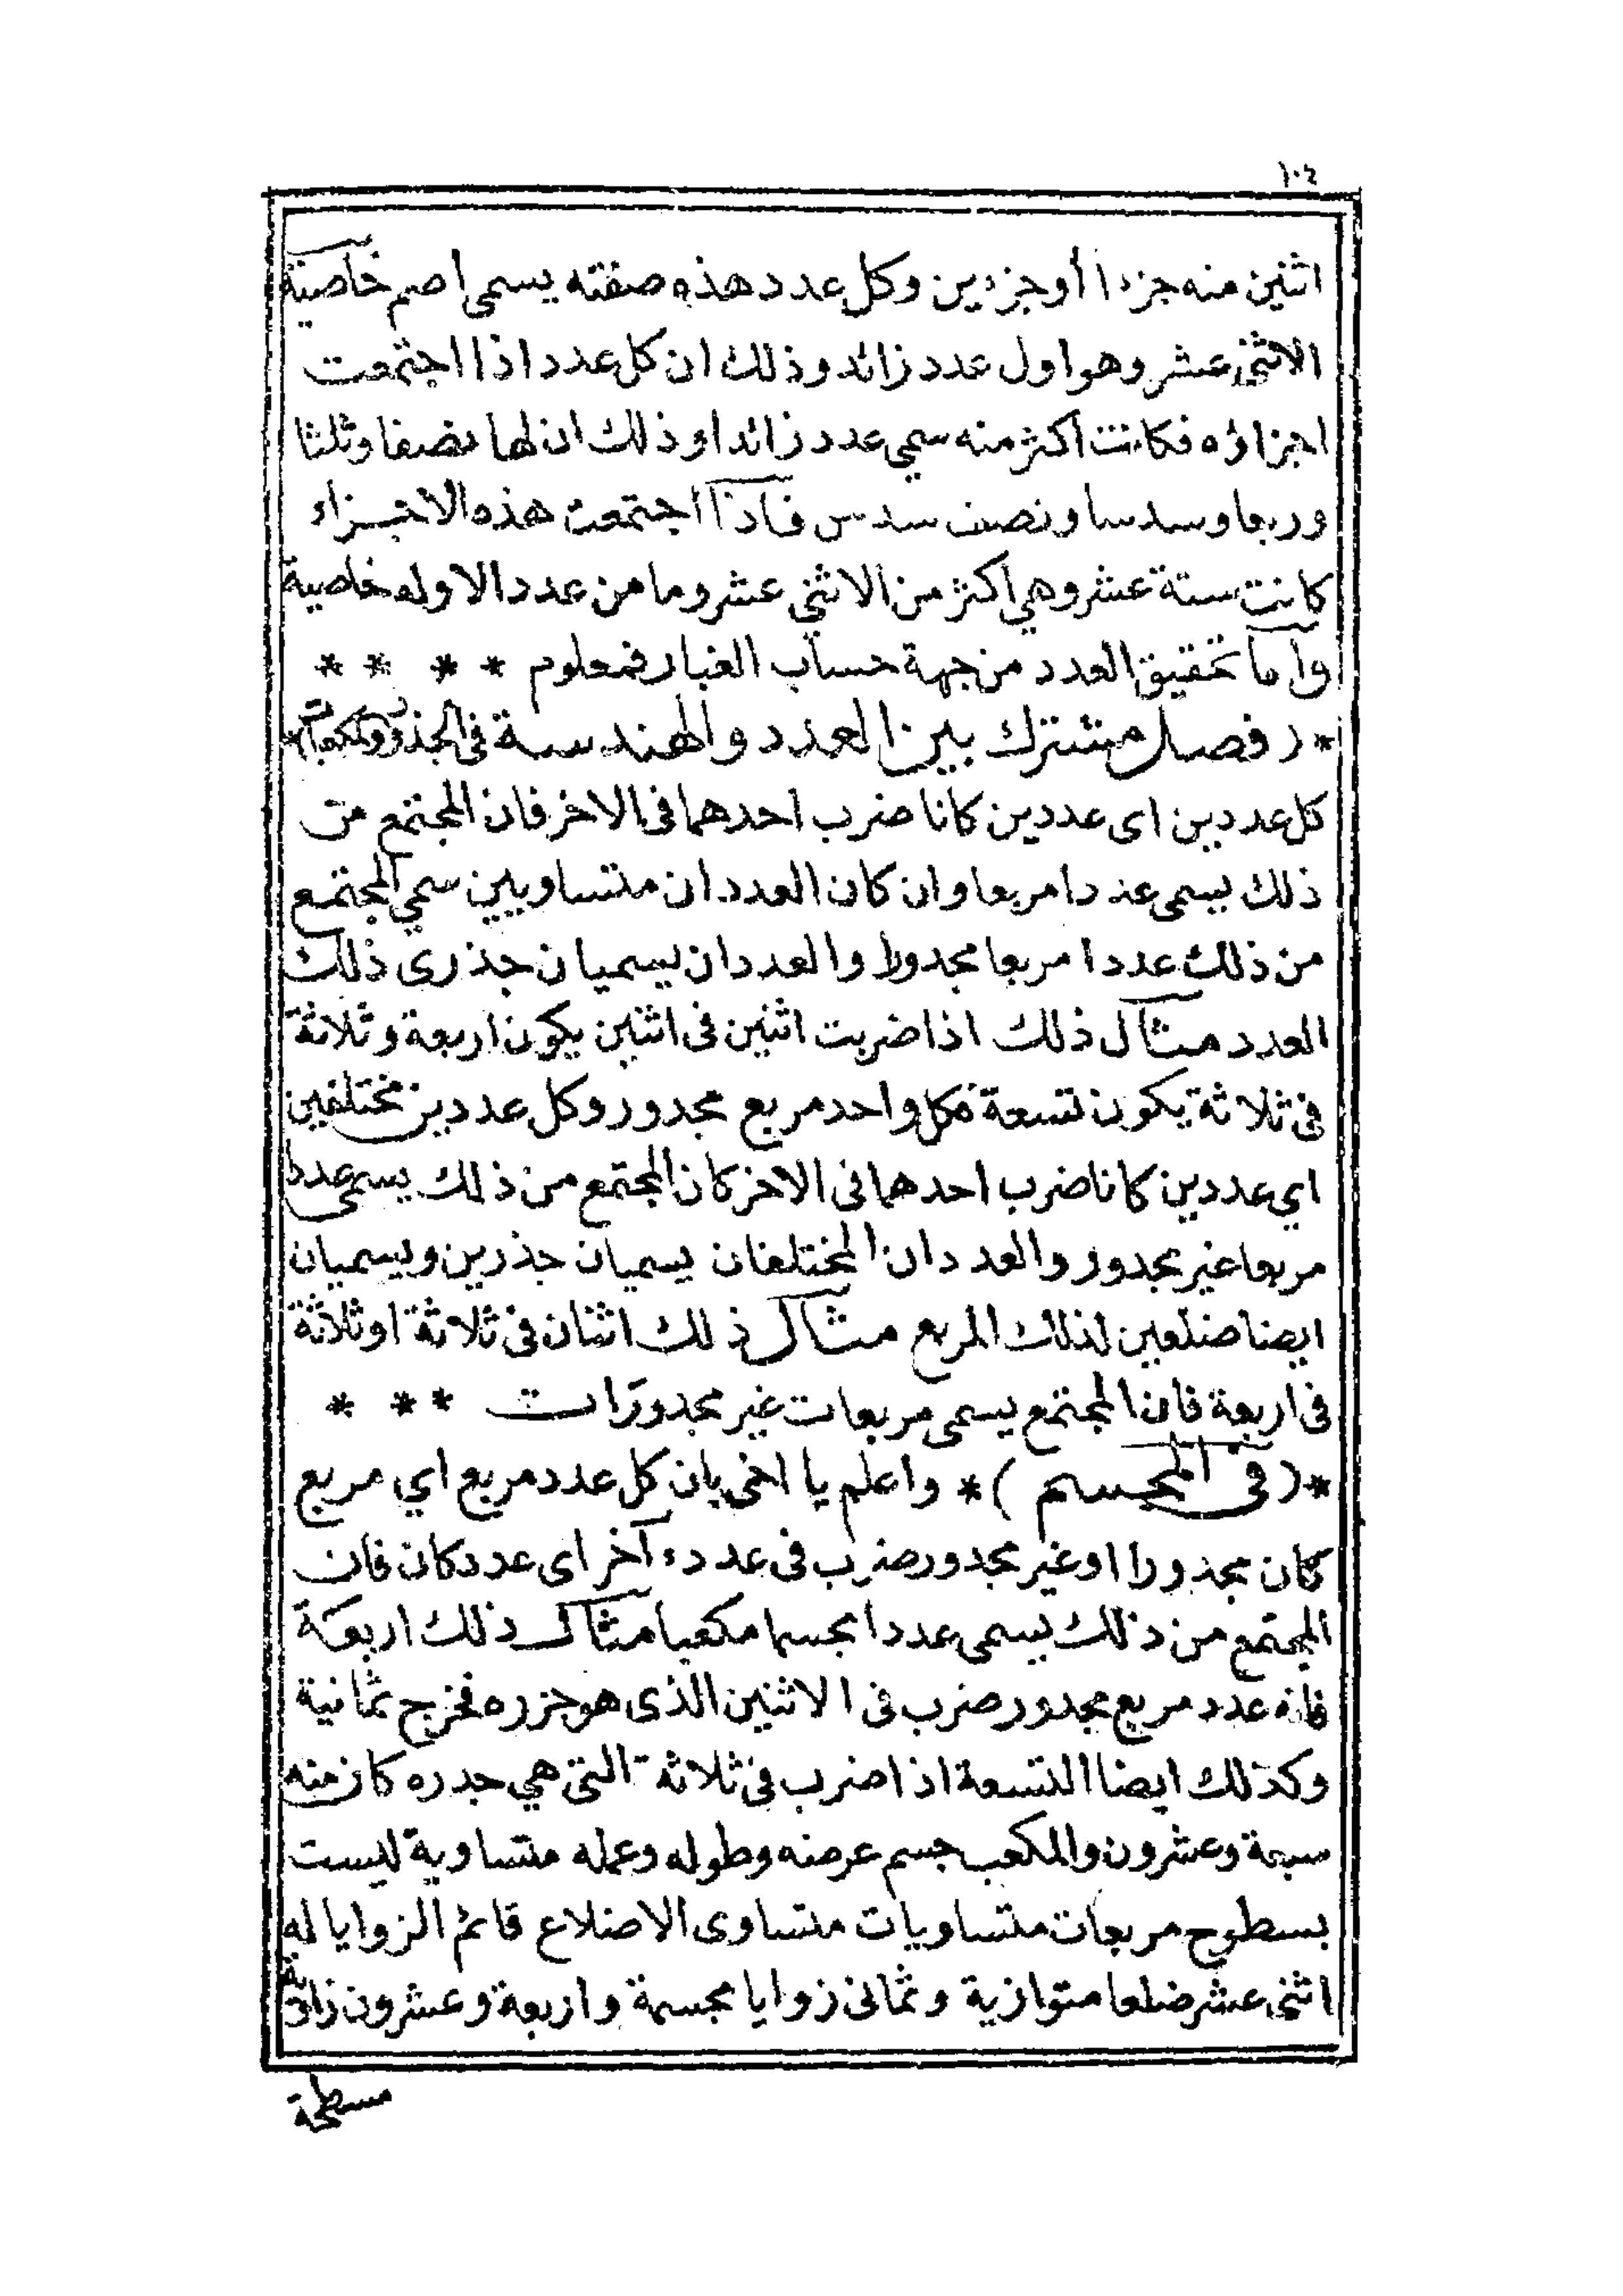 ١٠٤
اثنين منه جزءا أو جزءين وكل عدد هذه صفته يسمى اصم خاصية
الاثنى عشر وهو اول عدد زائد وذلك ان كل عدد اذا اجتمعت
اجزاؤه فكانت اكثر منه سمي عدد زائدا وذلك ان لها نصفا وثلثا
وربعا وسدسا ونصف سدس فاذا اجتمعت هذه الاجزاء
كانت ستة عشر وهي اكثر من الاثنى عشر وما من عدد الا وله خاصية
واما تحقيق العدد من جهة حساب الغبار فمعلوم * * * *
*( فصل مشترك بين العدد والهندسة فى الجذور والمكعبات )*
كل عددين اى عددين كانا ضرب احدهما فى الاخر فان المجتمع من
ذلك يسمى عددا مربعا وان كان العددان متساويين سمي المجتمع
من ذلك عددا مربعا مجدورا والعددان يسميان جذرى ذلك
العدد مثال ذلك اذا ضربت اثنين فى اثنين يكون اربعة وثلاثة
فى ثلاثة يكون تسعة فكل واحد مربع مجدور وكل عددين مختلفين
اي عددين كانا ضرب احدهما فى الاخر كان المجتمع من ذلك يسمى عددا
مربعا غير مجدور والعددان المختلفان يسميان جذرين ويسميان
ايضا ضلعين لذلك المربع مثال ذلك اثنان فى ثلاثة او ثلاثة
فى اربعة فان المجتمع يسمى مربعات غير مجدورات * * *
*( فى المجسم )* واعلم يا اخى بان كل عدد مربع اي مربع
كان مجذورا او غير مجدور ضرب فى عدد آخر اى عدد كان فان
المجتمع من ذلك يسمى عددا مجسما مكعبا مثال ذلك اربعة
فانه عدد مربع مجدور ضرب فى الاثنين الذى هو جزره فخرج ثمانية
وكذلك ايضا التسعة اذا ضرب فى ثلاثة التى هي جدره كان منه
سبعة وعشرون والمكعب جسم عرضه وطوله وعمله متساوية ليست
بسطوح مربعات متساويات متساوى الاضلاع قائم الزوايا له
اثنى عشر ضلعا متوازية وثمانى زوايا مجسمة واربعة وعشرون زاوية
مسطحة